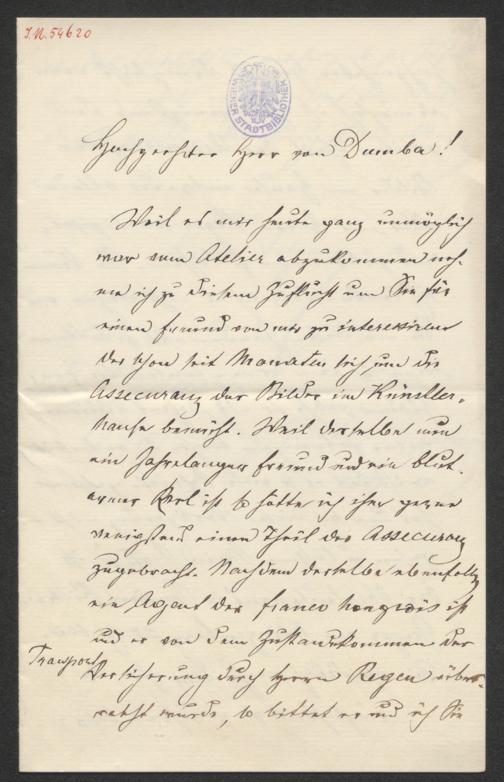 I.N. 54620
WIENER STADTBIBLIOTHEK
Hochgeehrter Herr von Dumba!
Weil es mir heute ganz unmöglich
war vom Atelier abzukommen neh-
me ich zu diesem Zuflucht um Sie für
einen Freund von mir zu interessiren
der schon seit Monaten sich um die
Assecuranz der Bilder im Künstler-
hause bemüht. Weil derselbe nun
ein Jahrelanger Freund und ein blut-
armer Kerl ist so hätte ich ihm gerne
wenigstens einen Theil der Assecuranz
zugebracht. Nachdem derselbe ebenfalls
ein Agent der franco hongrois ist
und er von dem Zustandekommen der
Transport
Versicherung durch Herrn Regen über-
rascht wurde, so bittet er und ich Sie